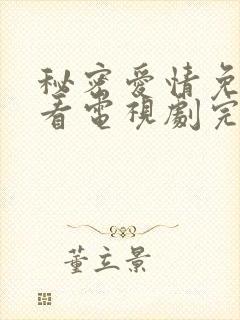 秘密愛情免
看電視劇完
董立景